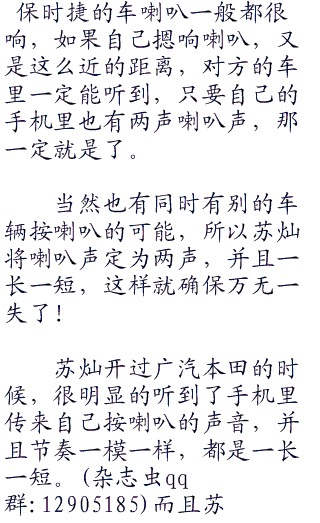 保时捷的车喇叭一般都很
响，如果自己摁响喇叭，又
是这么近的距离，对方的车
里一定能听到，只要自己的
手机里也有两声喇叭声，那
一定就是了。
当然也有同时有别的车
辆按喇叭的可能，所以苏灿
将喇叭声定为两声，并且一
长一短，这样就确保万无一
失了！
苏灿开过广汽本田的时
候，很明显的听到了手机里
传来自己按喇叭的声音，并
且节奏一模一样，都是一长
一短。(杂志虫qq
群:12905185)而且苏